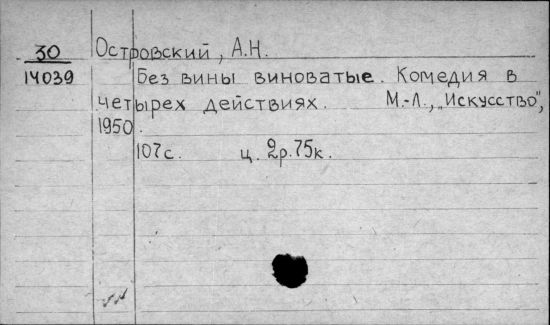 30 Островский, А.Н.
14039 Без вины виноватые. Комедия в
четырех действиях. М.-Л., „Искусство",
1950.
107с. ц. 2р.75к.